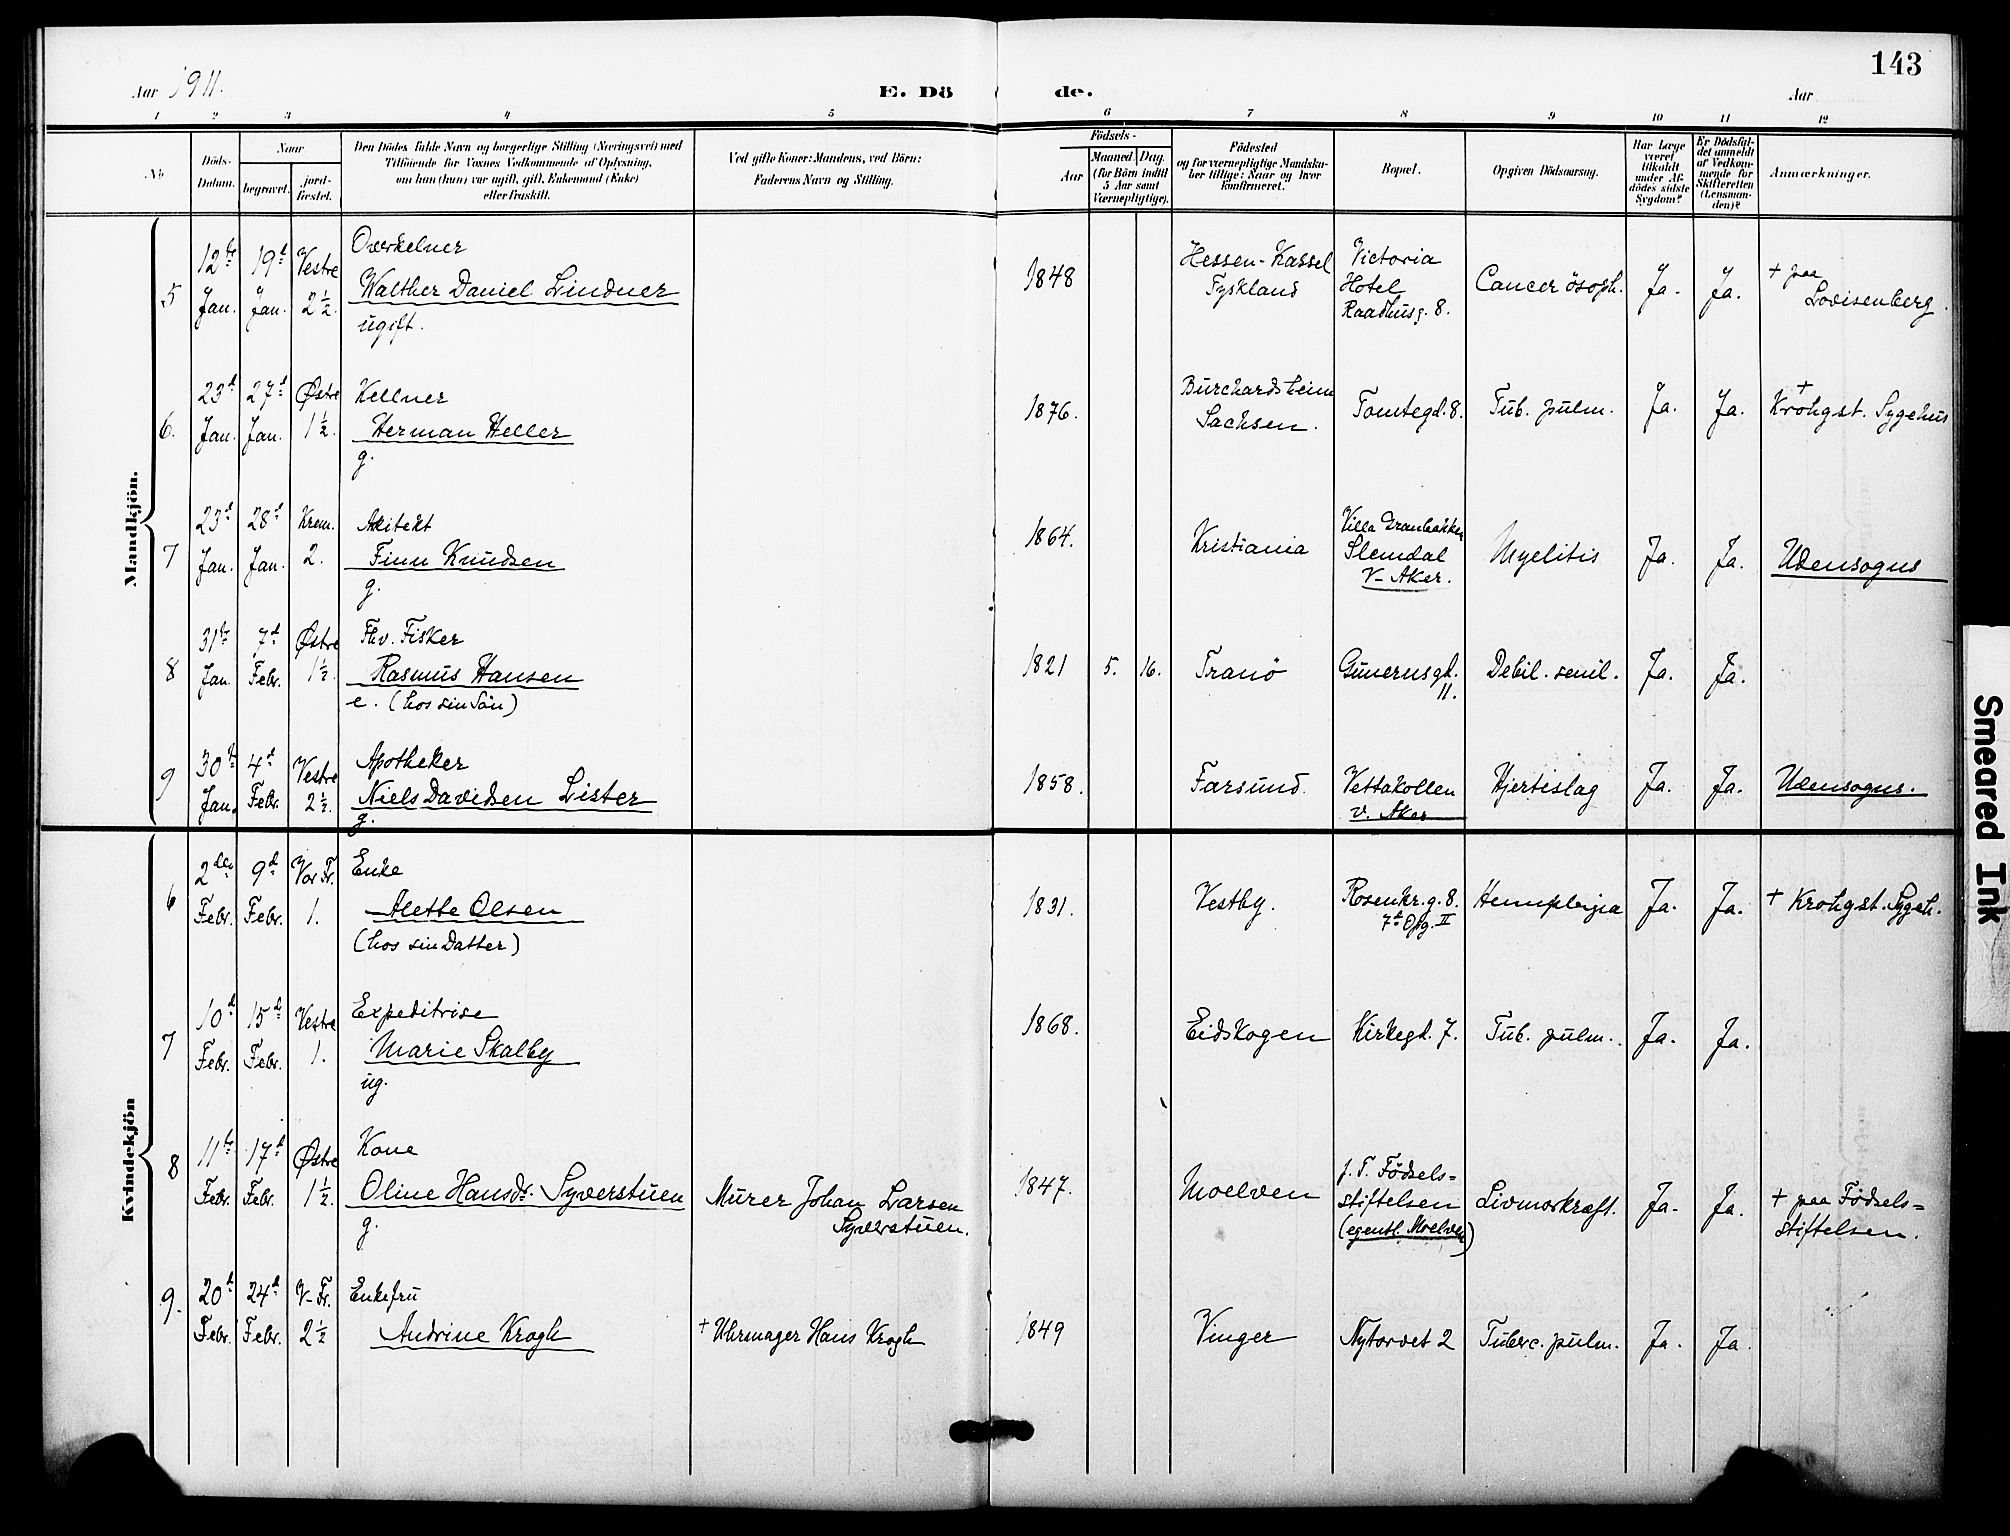 143
Aar 1911.
E. Dö de.
Aar
1 2 3 4 5 6 7 8 9 10 11 12
No
Döds-
Datum.
Naar
begravet.
jord-
fæstet.
Den Dödes fulde Navn og borgerlige Stilling (Næringsvei) med
Tilföiende for Voxnes Vedkommende af Oplysning,
om han (hun) var ugift, gift, Enkemand (Enke)
eller fraskilt.
Ved gifte Koner: Mandens, ved Börn:
Faderens Navn og Stilling.
Födsels-
Aar
Maaned. Dag.
(for Börn indtil
5 Aar samt
Værnepligtige).
Födested
og for værnepligtige Mandska-
ber tillige: Naar og hvor
konfirmeret.
Bopæl.
Opgiven Dödsaarsag.
Har Læge
været
tilkaldt
under Af-
dödes sidste
Sygdom?
Er Dödsfal-
det anmeldt
af Vedkom-
mende for
Skifteretten
(Lensman-
den)?
Anmærkninger.
Mandkjön.
5
12te
Jan.
19d
Jan.
Vestre
2½.
Overkelner
Walther Daniel Lindner
ugift.
1848
Hessen-Kassel
Tyskland
Victoria
Hotel
Raadhusg. 8.
Cancer ösoph.
Ja.
Ja.
+ paa
Lovisenberg.
6.
23d
Jan.
27d
Jan.
Østre
1½.
Kellner
Herman Heller
g.
1876.
Burchardsheim
Sachsen.
Tomtegd. 8.
Tub. pulm.
Ja.
Ja.
+
Krohgst. Sygehus
7
23d
Jan.
28d
Jan.
Krem.
2.
Akitekt
Finn Knudsen
g.
1864.
Kristiania
Villa Granbakken
Slemdal
V-Aker.
Myelitis
Ja.
Ja.
Udensogns
8
31te
Jan.
7d
Febr.
Østre
1½.
Fhv. Fisker
Rasmus Hansen
e. (hos sin Sön)
1821
5.
16.
Tranö
Gunerusgd.
11.
Debil. senil.
Ja.
Ja.
9
30te
Jan.
4d
Febr.
Vestre
2½.
Apotheker
Niels Davidsen Lister
g.
1858.
Farsund.
Vettakollen
v. Aker
Hjerteslag
Ja.
Ja.
Udensogns.
Kvindekjön
6
2den
Febr.
9d
Febr.
Vor Fr.
1.
Enke
Alette Olsen
(hos sin Datter)
1831.
Vestby.
Rosenkr.g. 8.
7d Opg. II
Hemiplegia
Ja.
Ja.
+ Krohgst. Sygeh.
7
10d
Febr.
15d
Febr.
Vestre
1.
Expeditrise
Marie Skalby
ug.
1868.
Eidskogen
Kirkegd. 7.
Tub. pulm.
Ja.
Ja.
8
11te
Febr.
17d
Febr.
Østre
1½.
Kone
Oline Hansdr. Syverstuen
g.
Murer Johan Larsen
Syverstuen.
1847.
Moelven
f. T. Födsels=
stiftelsen
(egentl. Moelven)
Livmorkræft.
Ja.
Ja.
+ paa Födsels=
stiftelsen.
9.
20d
Febr.
24d
Febr.
V-Fr.
2½
Enkefru
Andrine Krogh
+ Uhrmager Hans Krogh
1849
Vinger
Nytorvet 2
Tuberc. pulm.
Ja.
Ja.
Smeared Ink